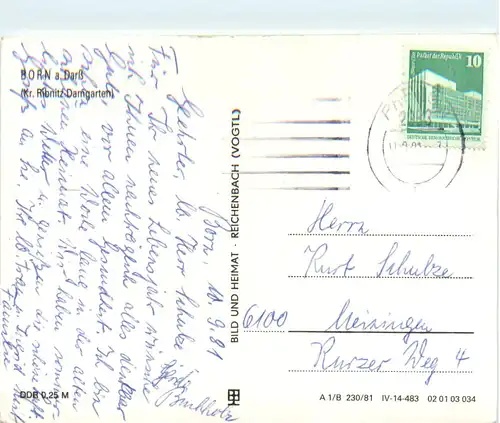 BORN a. Darß
(Kr. Ribnitz Damgarten)
Born 10.9.81
Geehrter, lb. Herr Schulze
Für Ihr neues Lebensjahr wünsche
ich Ihnen nachträglich alles denkbar
Gute, vor allem Gesundheit. Ich bin
eine Woche lang in der alten
Heimat. Wir haben sommer-
Wetter u. genießen die schöne
an Sie, Ihre lb. Frau u.
Familie
Buchholz
DDR 0,25 M
BILD UND HEIMAT · REICHENBACH (VOGTL)
Palast der Republik
10
DEUTSCHE DEMOKRATISCHE REPUBLIK
Herrn
Kurt Schulze
6100 Meiningen
Kurzer Weg 4
A 1/B 230/81 IV-14-483 02 01 03 034